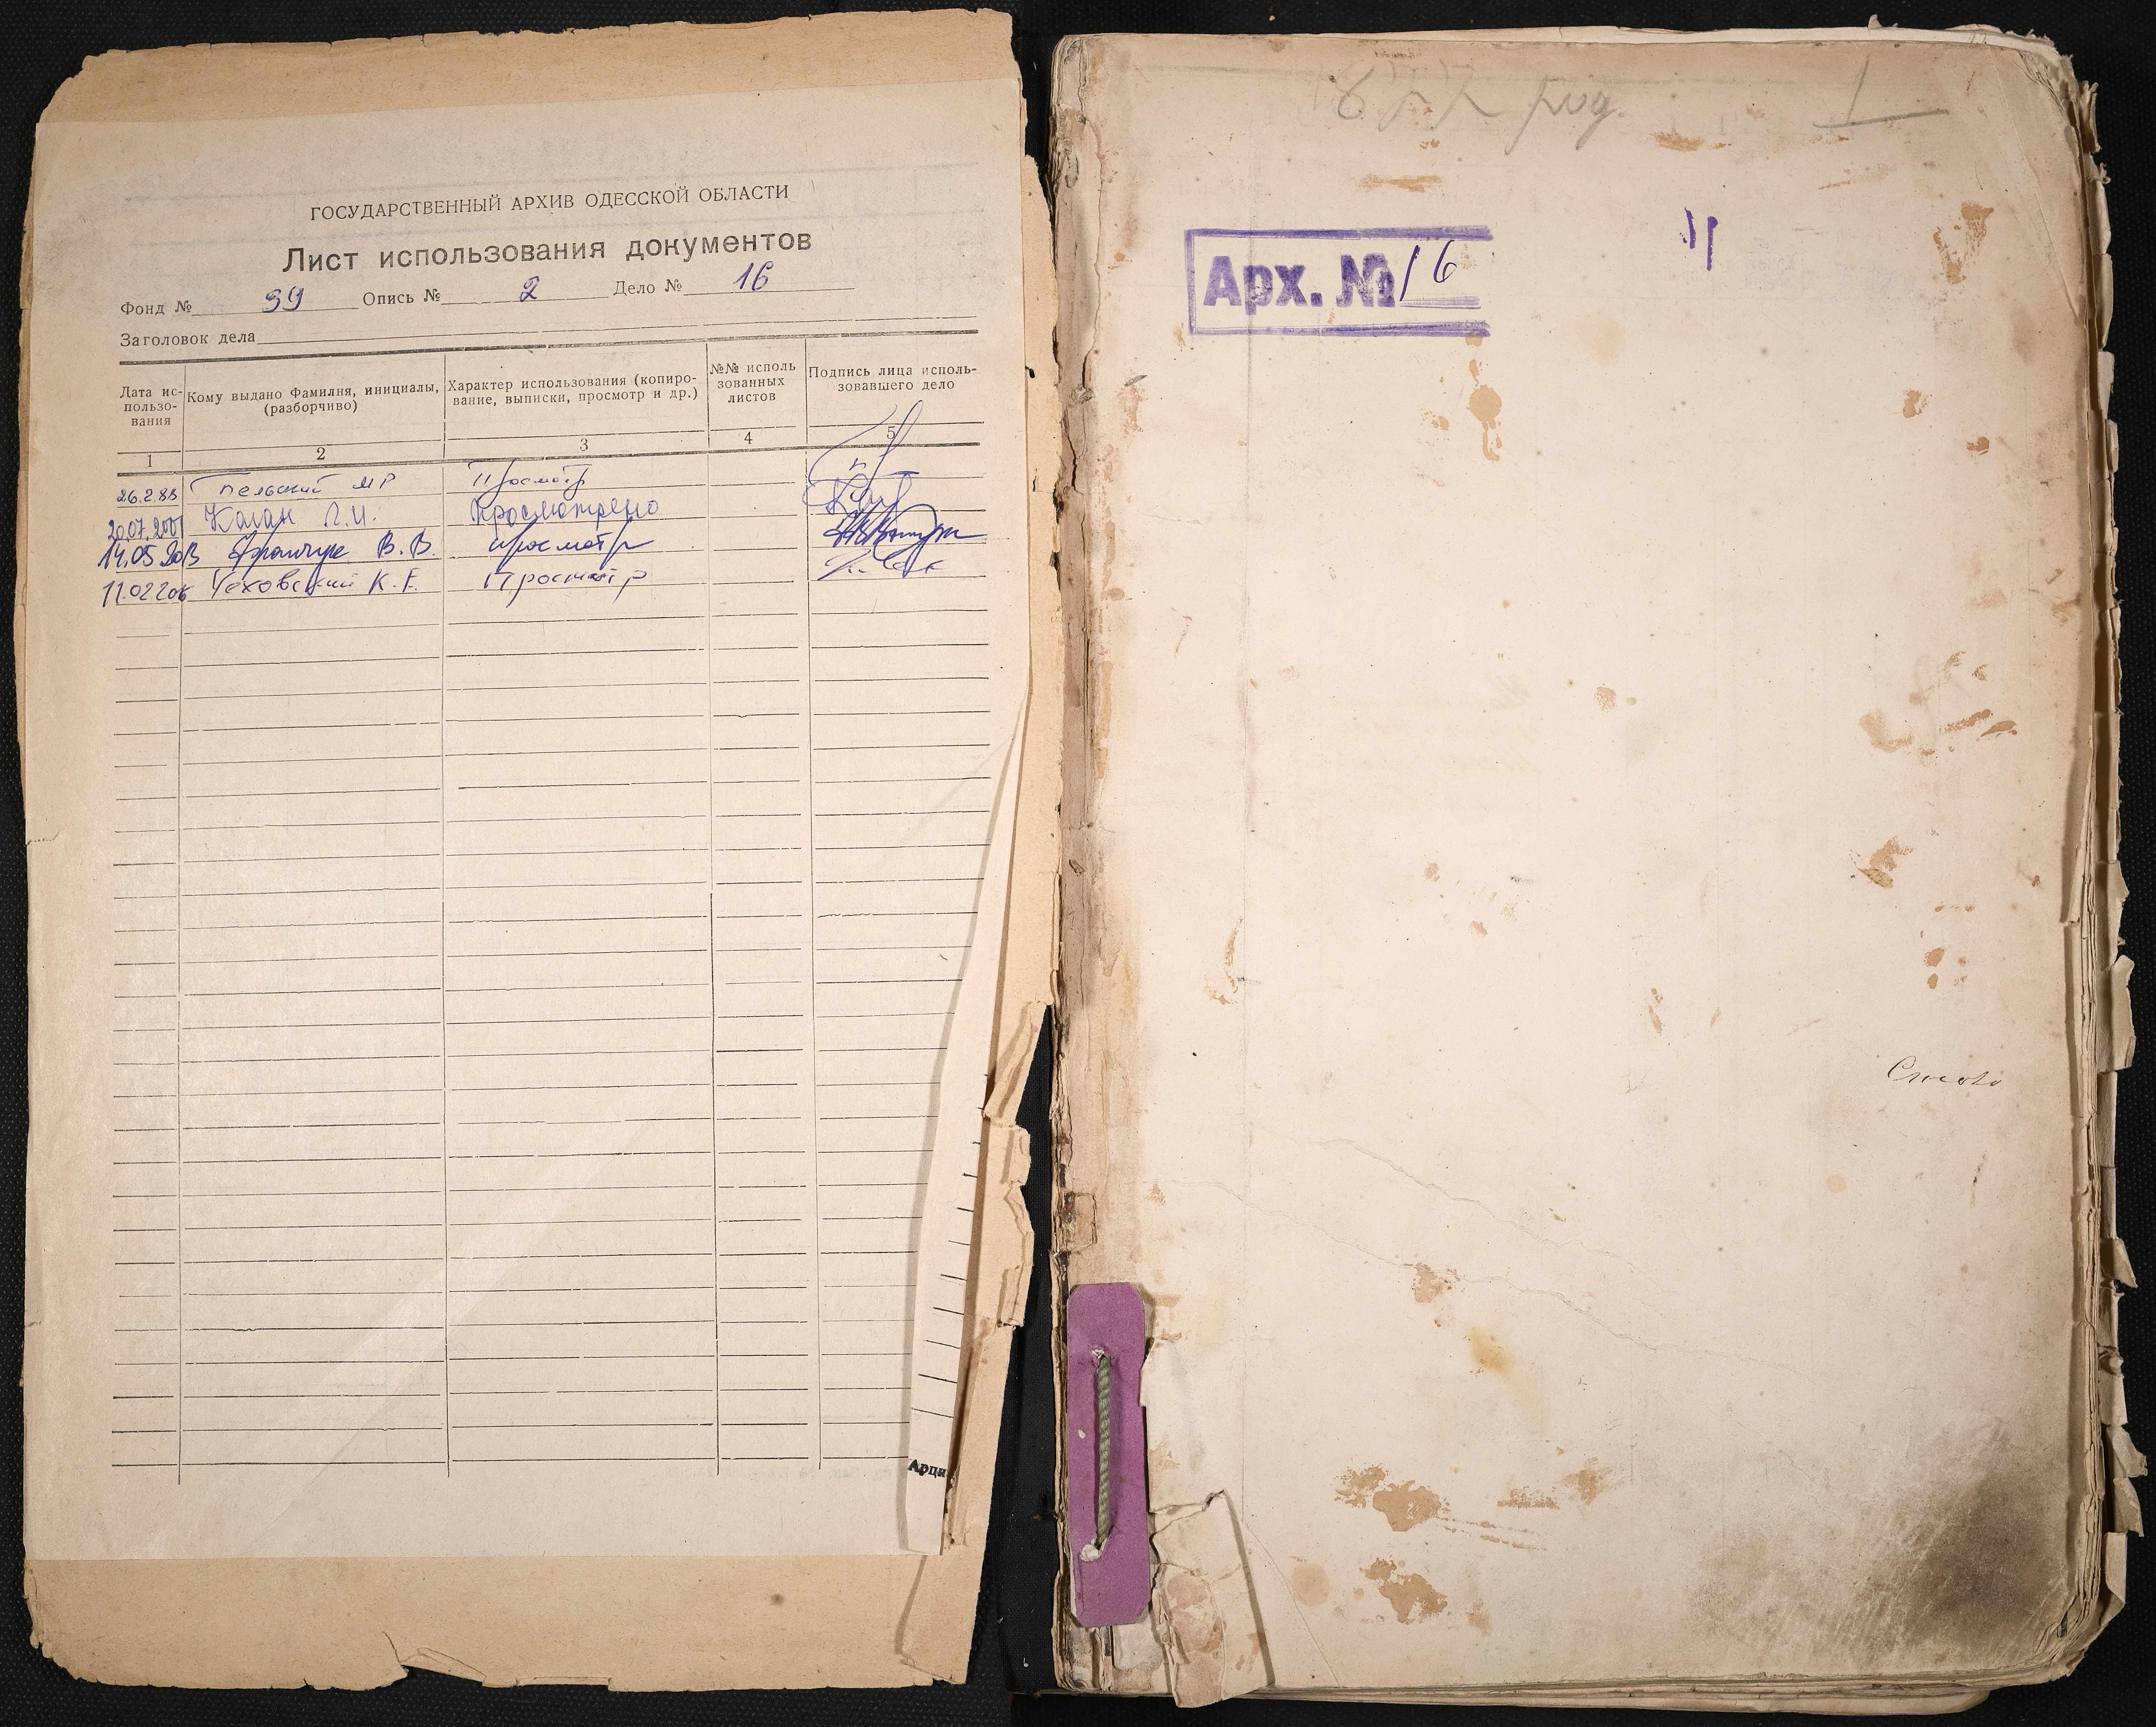 ГОСУДАРСТВЕННЫЙ АРХИВ ОДЕССКОЙ ОБЛАСТИ
Лист использования документов
Фонд № 39 Опись № 2 Дело № 16
Заголовок дела
Дата использования
Кому выдано Фамилия, инициалы, (разборчиво)
Характер использования (копирование, выписки, просмотр и др.)
№№ исполь зованных листов
Подпись лица использовавшего дело
1 2 3 4 5
26.2.88 Бельский МР Просмотр
20.07.2001 Каган Л.И. Просмотрено
14.05.2013 В.В. просмотр
11.02 Чеховский К.Е. Просмотр
Арци
1877 род. 1
Арх. № 16